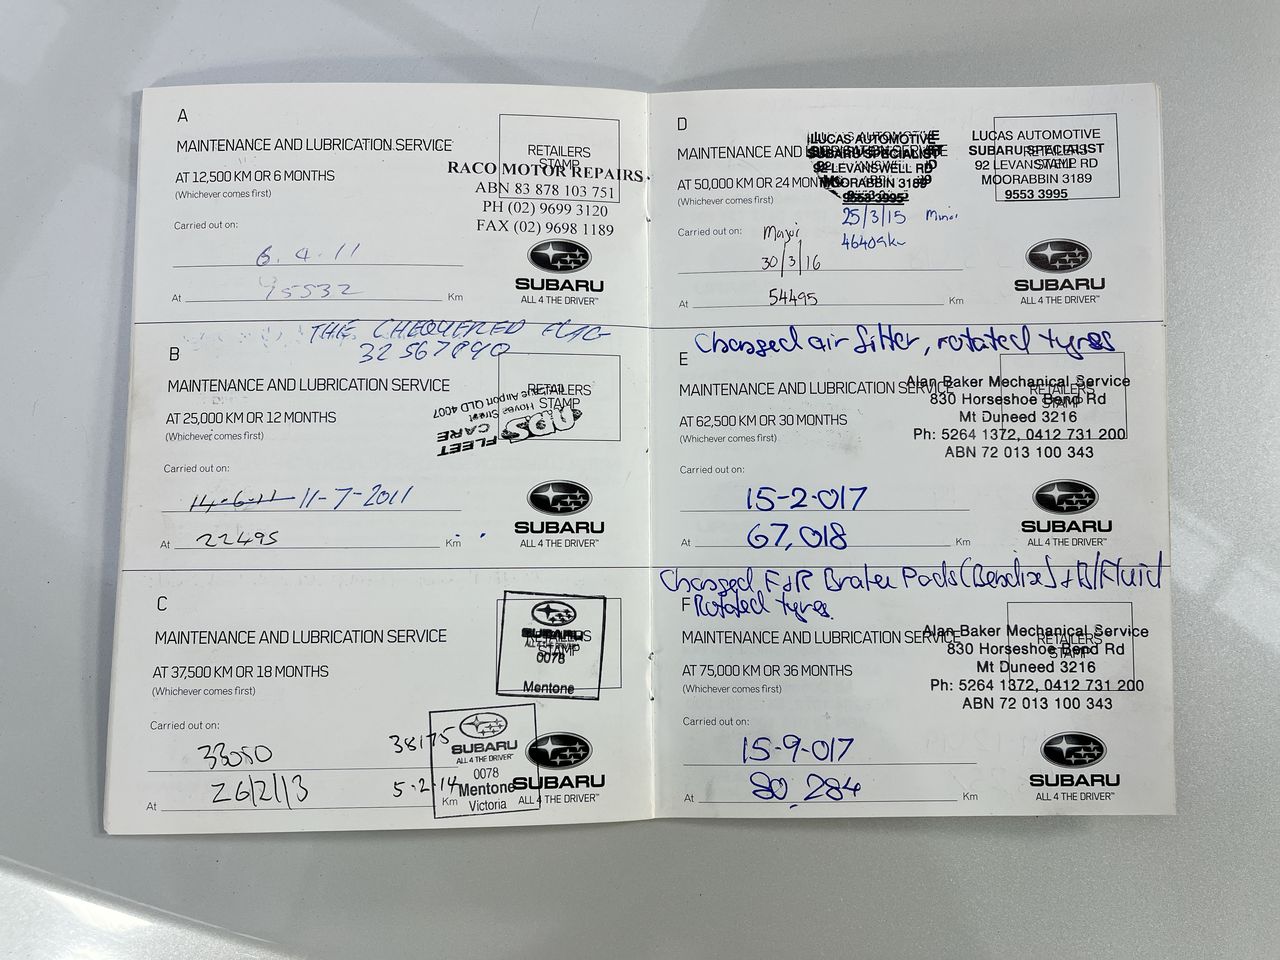 A
MAINTENANCE AND LUBRICATION SERVICE
AT 12,500 KM OR 6 MONTHS
(Whichever comes first)
RETAILERS
STAMP
RACO MOTOR REPAIRS
ABN 83 878 103 751
PH (02) 9699 3120
FAX (02) 9698 1189
Carried out on:
6.4.11
SUBARU
ALL 4 THE DRIVER™
At
Km
THE CHEQUERED FLAG
32567890
B
MAINTENANCE AND LUBRICATION SERVICE
AT 25,000 KM OR 12 MONTHS
(Whichever comes first)
RETAILERS
STAMP
Airport QLD 4007
Street
FLEET
CARE
Carried out on:
14-6-11 11-7-2011
SUBARU
ALL 4 THE DRIVER™
At 22495 Km
C
MAINTENANCE AND LUBRICATION SERVICE
AT 37,500 KM OR 18 MONTHS
(Whichever comes first)
RETAILERS
STAMP
SUBARU
0078
Mentone
Carried out on:
33080
38175
SUBARU
ALL 4 THE DRIVER™
0078
Mentone
Victoria
At 26/2/13
5.2.14
Km
SUBARU
ALL 4 THE DRIVER™
D
MAINTENANCE AND LUBRICATION SERVICE
AT 50,000 KM OR 24 MONTHS
(Whichever comes first)
LUCAS AUTOMOTIVE
SUBARU SPECIALIST
92 LEVANSWELL RD
MOORABBIN 3189
9553 3995
RETAILERS
STAMP
LUCAS AUTOMOTIVE
SUBARU SPECIALIST
92 LEVANSWELL RD
MOORABBIN 3189
9553 3995
25/3/15 Minor
46409km
Carried out on:
Major
30/3/16
SUBARU
ALL 4 THE DRIVER™
At 54495 Km
Changed air filter, rotated tyres
E
MAINTENANCE AND LUBRICATION SERVICE
AT 62,500 KM OR 30 MONTHS
(Whichever comes first)
RETAILERS
STAMP
Alan Baker Mechanical Service
830 Horseshoe Bend Rd
Mt Duneed 3216
Ph: 5264 1372, 0412 731 200
ABN 72 013 100 343
Carried out on:
15-2-017
SUBARU
ALL 4 THE DRIVER™
At 67,018 Km
Changed F&R Brake Pads (Bendix) + B/Fluid
Rotated tyres
F
MAINTENANCE AND LUBRICATION SERVICE
AT 75,000 KM OR 36 MONTHS
(Whichever comes first)
RETAILERS
STAMP
Alan Baker Mechanical Service
830 Horseshoe Bend Rd
Mt Duneed 3216
Ph: 5264 1372, 0412 731 200
ABN 72 013 100 343
Carried out on:
15-9-017
SUBARU
ALL 4 THE DRIVER™
At 80,284 Km